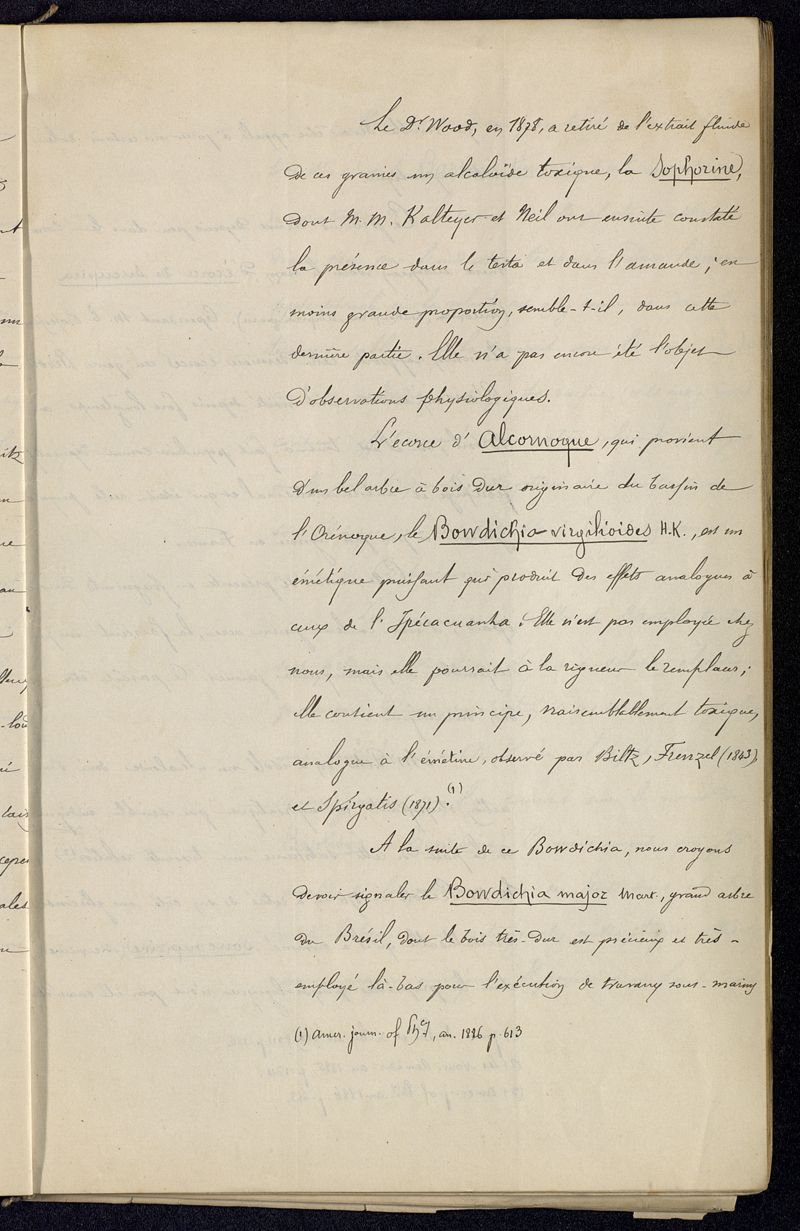 Le Dr Wood, en 1878, a retiré de l'extrait fluide
de ces graines un alcaloïde toxique, la Sophorine,
dont M. M. Kalteyer et Neil ont ensuite constaté
la présence dans le testa et dans l'amande ; en
moins grande proportion, semble-t-il, dans cette
dernière partie. Elle n'a pas encore été l'objet
d'observations physiologiques.
L'écorce d'Alcornoque, qui provient
d'un bel arbre à bois dur originaire du bassin de
l'Orénoque, le Bowdichia virgilioides H.K., est un
émétique puissant qui produit des effets analogues à
ceux de l'Ipécacuanha. Elle n'est pas employée chez
nous, mais elle pourrait à la rigueur le remplacer ;
elle contient un principe, vraisemblablement toxique,
analogue à l'émétine, observé par Biltz, Frenzel (1843),
et Spirgatis (1871). (1)
A la suite de ce Bowdichia, nous croyons
devoir signaler le Bowdichia major Mart., grand arbre
du Brésil, dont le bois très-dur est précieux et très-
employé là-bas pour l'exécution de travaux sous-marins
(1) Amer. journ. of Phcy, an. 1886 p. 613